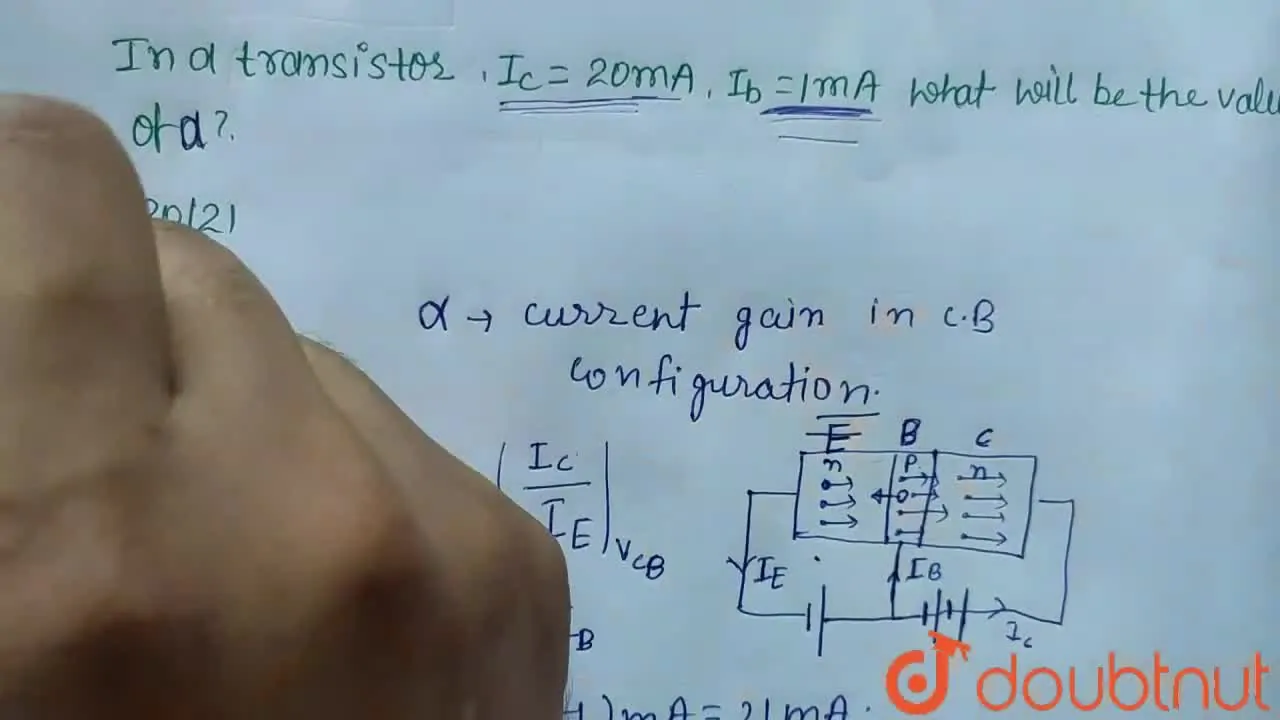 In a transistor, Ic = 20mA, Ib = 1mA what will be the valu
of α?
20/21
α → current gain in C.B
configuration.
E B C
n P n
Ic
IE
VCB
IE IB Ic
B
)mA = 21mA.
doubtnut